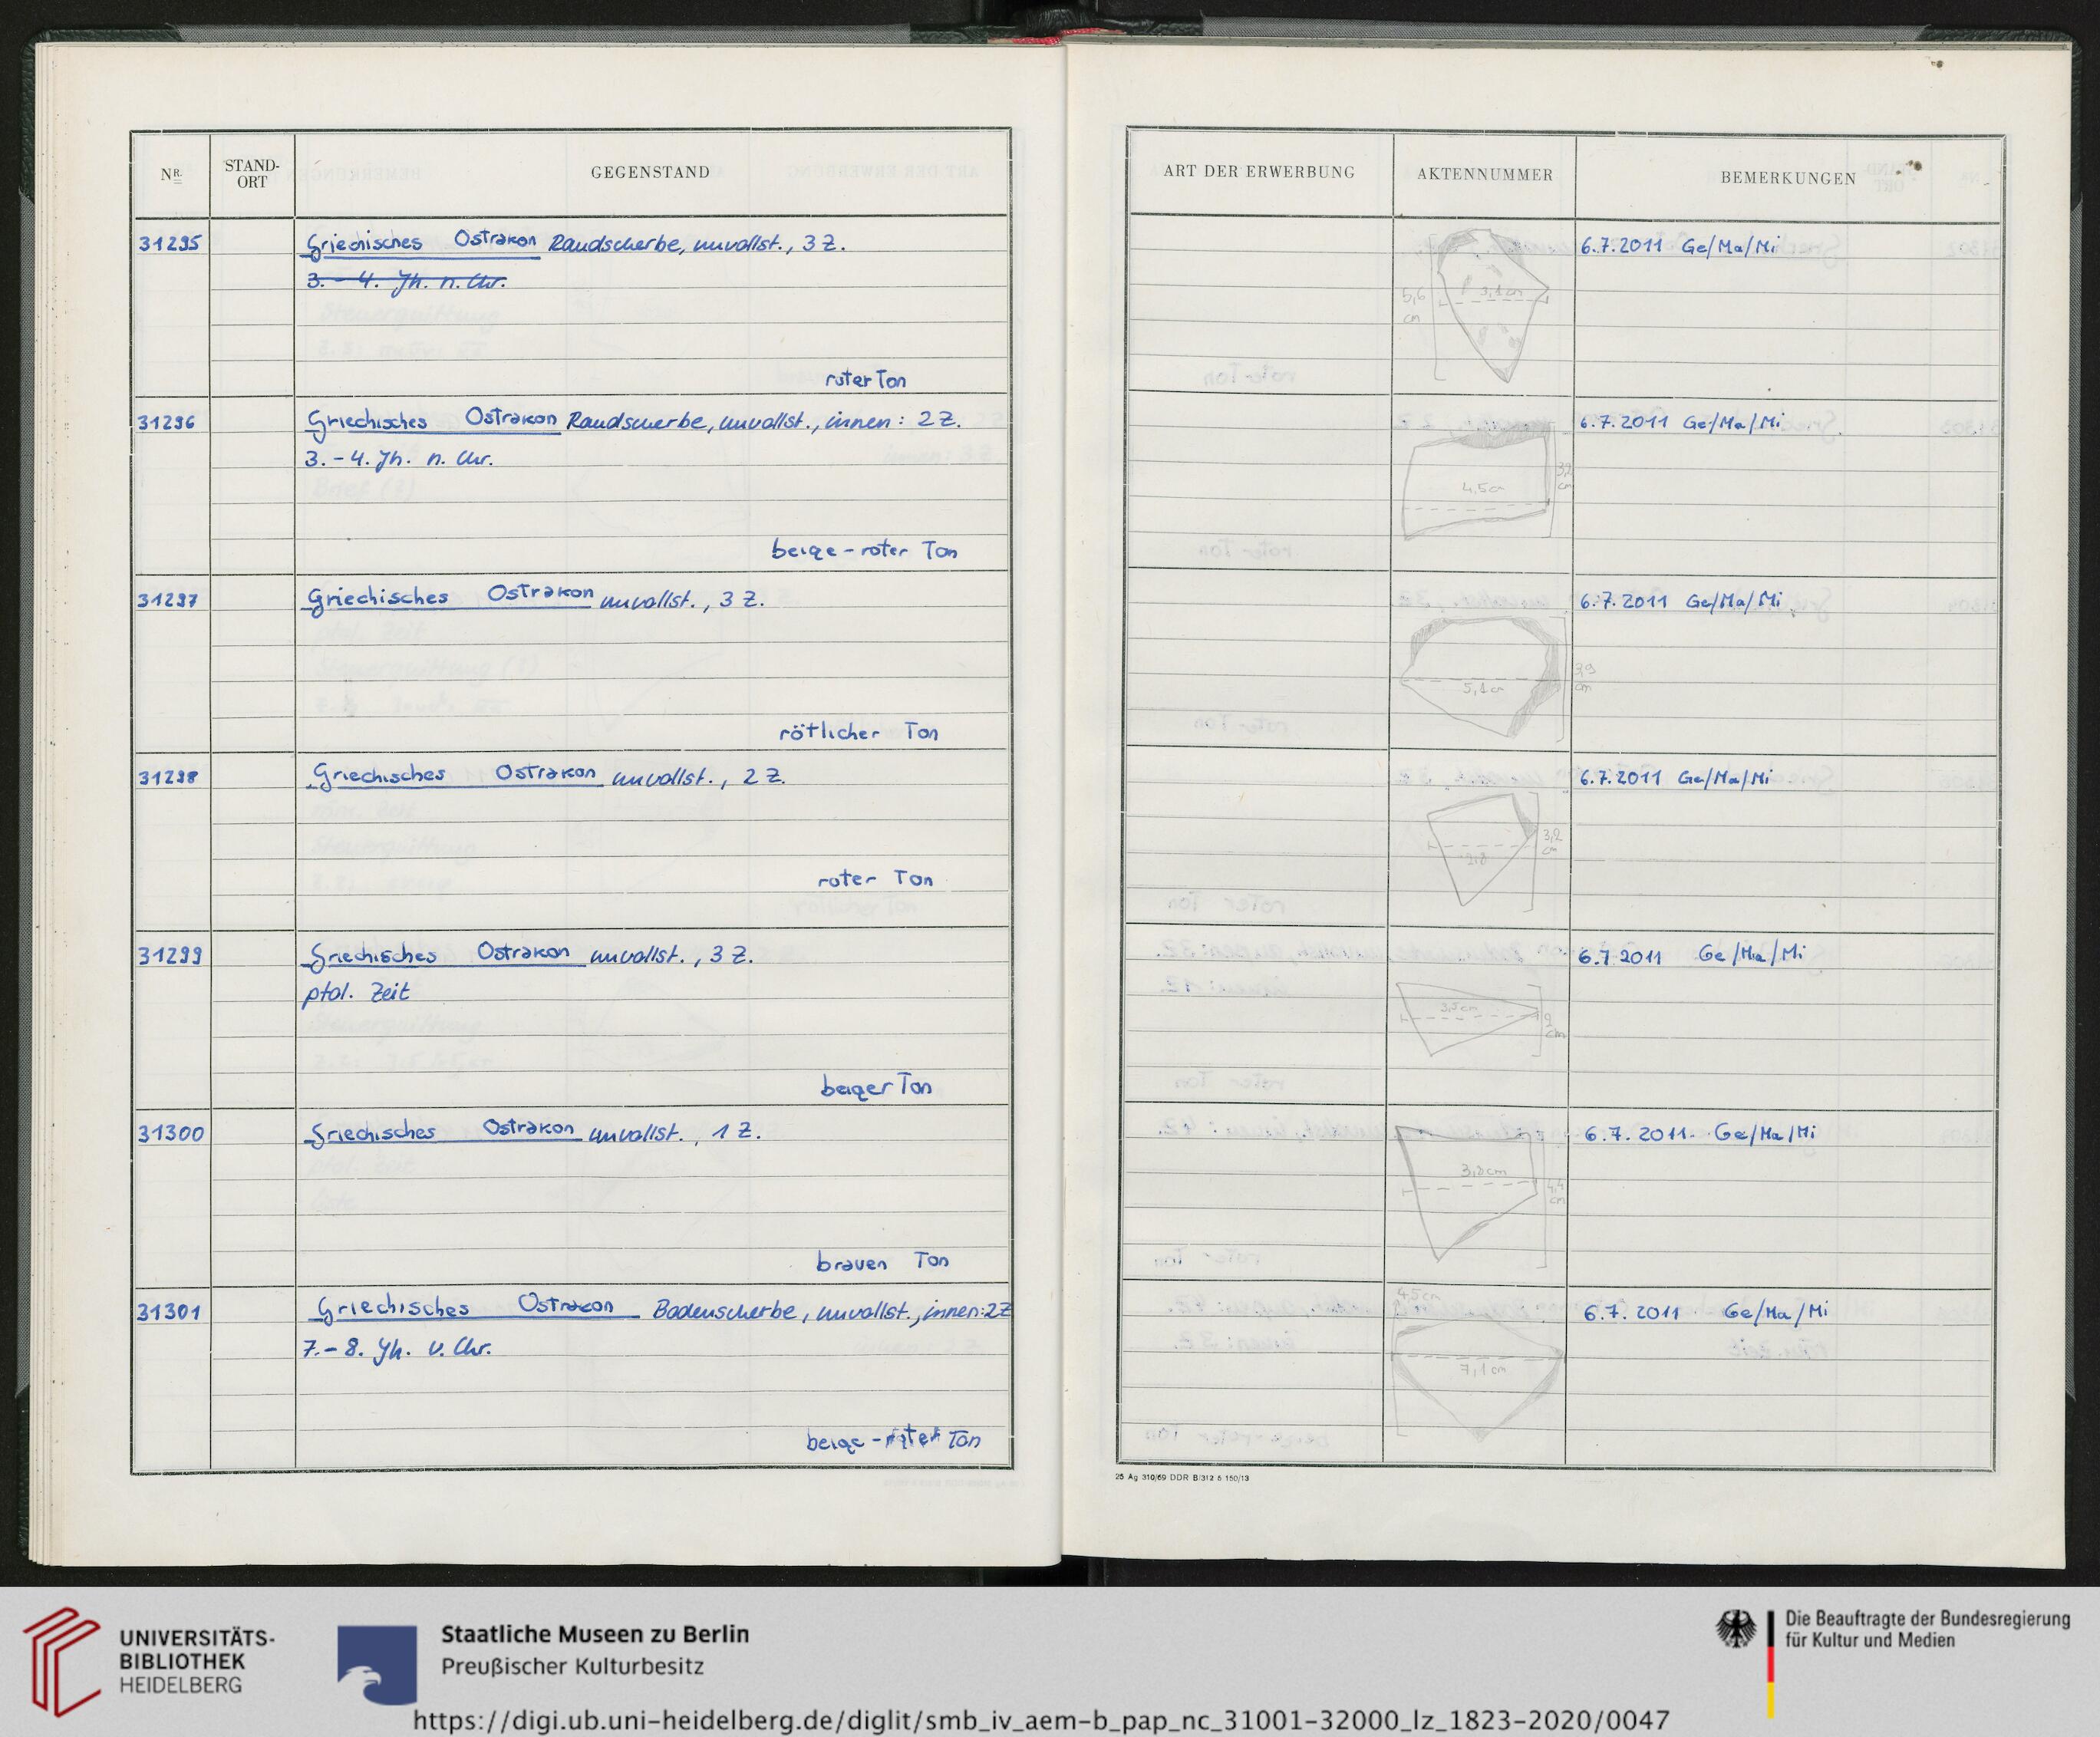 NR.
STAND-
ORT
GEGENSTAND
31295
Griechisches Ostrakon Randscherbe, unvollst., 3 Z.
3.-4. Jh. n. Chr.
roter Ton
31296
Griechisches Ostrakon Randscherbe, unvollst., innen: 2 Z.
3.-4. Jh. n. Chr.
beige-roter Ton
31297
Griechisches Ostrakon unvollst., 3 Z.
rötlicher Ton
31298
Griechisches Ostrakon unvollst., 2 Z.
roter Ton
31299
Griechisches Ostrakon unvollst., 3 Z.
ptol. Zeit
beiger Ton
31300
Griechisches Ostrakon unvollst., 1 Z.
brauen Ton
31301
Griechisches Ostrakon Bodenscherbe, unvollst., innen: 2 Z
7.-8. Jh. v. Chr.
beige-roter Ton
ART DER ERWERBUNG
AKTENNUMMER
BEMERKUNGEN
5,6
cm
3,1 cm
6.7.2011 Ge/Ma/Mi
4,5 cm
3,2
cm
6.7.2011 Ge/Ma/Mi
5,1 cm
3,9
cm
6.7.2011 Ge/Ma/Mi
2,8
3,2
cm
6.7.2011 Ge/Ma/Mi
3,5 cm
2
cm
6.7 2011 Ge/Ma/Mi
3,8 cm
4,4
cm
6.7.2011. Ge/Ma/Mi
4,5 cm
7,1 cm
6.7.2011 Ge/Ma/Mi
25 Ag 310/69 DDR B/312 6 150/13
UNIVERSITÄTS-
BIBLIOTHEK
HEIDELBERG
Staatliche Museen zu Berlin
Preußischer Kulturbesitz
https://digi.ub.uni-heidelberg.de/diglit/smb_iv_aem-b_pap_nc_31001-32000_lz_1823-2020/0047
Die Beauftragte der Bundesregierung
für Kultur und Medien